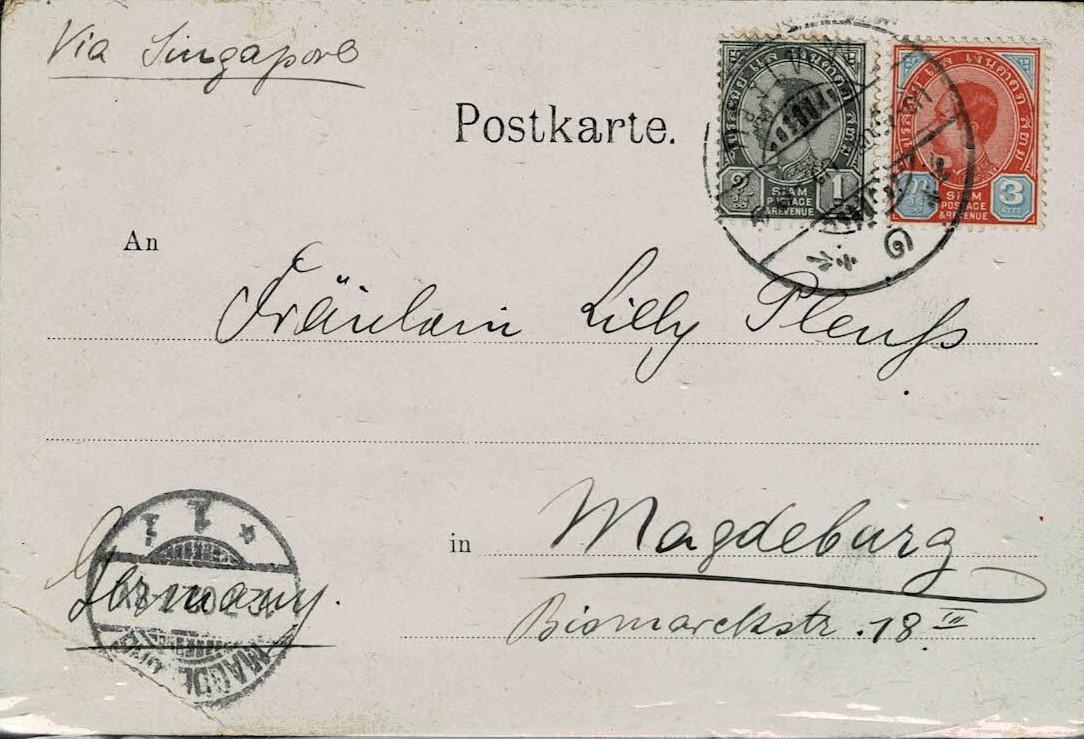 Via Singapore
Postkarte.
SIAM
POSTAGE
& REVENUE
1
SIAM
POSTAGE
& REVENUE
3
An
Fräulein Lilly Pleuß
in Magdeburg
Germany.
Bismarckstr. 18 III
MAGDEBURG
1 1 *